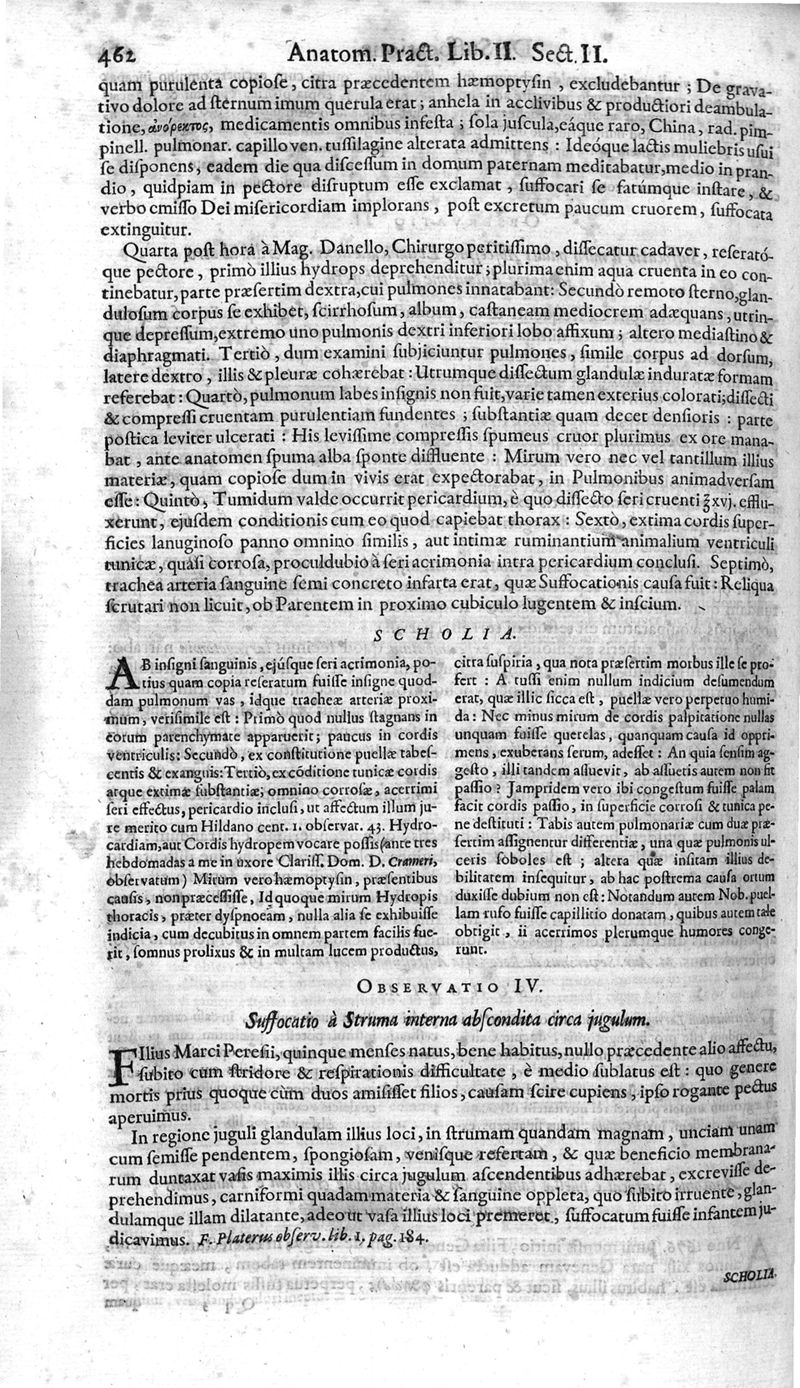 462 Anatom. Pract. Lib. II. Sect. II.
quam purulenta copiose, citra præcedentem hæmoptysin, excludebantur; De grava-
tivo dolore ad sternum imum querula erat; anhela in acclivibus & productiori deambula-
tione, ἀνόρεκτος, medicamentis omnibus infesta; sola juscula, eáque raro, China, rad. pim-
pinell. pulmonar. capillo ven. tussilagine alterata admittens: Ideóque lactis muliebris usui
se disponens, eadem die qua discessum in domum paternam meditabatur, medio in pran-
dio, quidpiam in pectore disruptum esse exclamat, suffocari se fatúmque instare, &
verbo emisso Dei misericordiam implorans, post excretum paucum cruorem, suffocata
extinguitur.
Quarta post hora à Mag. Danello, Chirurgo peritissimo, dissecatur cadaver, reserató-
que pectore, primò illius hydrops deprehenditur; plurima enim aqua cruenta in eo con-
tinebatur, parte præsertim dextra, cui pulmones innatabant: Secundò remoto sterno, glan-
dulosum corpus se exhibet, scirrhosum, album, castaneam mediocrem adæquans, utrin-
que depressum, extremo uno pulmonis dextri inferiori lobo affixum; altero mediastino &
diaphragmati. Tertiò, dum examini subjiciuntur pulmones, simile corpus ad dorsum,
latere dextro, illis & pleuræ cohærebat: Utrumque dissectum glandulæ induratæ formam
referebat: Quartò, pulmonum labes insignis non fuit, varie tamen exterius colorati; dissecti
& compressi cruentam purulentiam fundentes; substantiæ quam decet densioris: parte
postica leviter ulcerati: His levissime compressis spumeus cruor plurimus ex ore mana-
bat, ante anatomen spuma alba sponte diffluente: Mirum vero nec vel tantillum illius
materiæ, quam copiose dum in vivis erat expectorabat, in Pulmonibus animadversam
esse: Quintò, Tumidum valde occurrit pericardium, è quo dissecto seri cruenti ℥xvj. efflu-
xerunt, ejusdem conditionis cum eo quod capiebat thorax: Sextò, extima cordis super-
ficies lanuginoso panno omnino similis, aut intimæ ruminantium animalium ventriculi
tunicæ, quasi corrosa, proculdubio à seri acrimonia intra pericardium conclusi. Septimò,
trachea arteria sanguine semi concreto infarta erat, quæ Suffocationis causa fuit: Reliqua
scrutari non licuit, ob Parentem in proximo cubiculo lugentem & inscium.
SCHOLIA.
AB insigni sanguinis, ejúsque seri acrimonia, po-
tius quam copia reseratum fuisse insigne quod-
dam pulmonum vas, idque tracheæ arteriæ proxi-
mum, verisimile est: Primò quod nullus stagnans in
eorum parenchymate apparuerit; paucus in cordis
ventriculis: Secundò, ex constitutione puellæ tabes-
centis & exanguis: Tertiò, ex cõditione tunicæ cordis
atque extimæ substantiæ; omnino corrosæ, acerrimi
seri effectus, pericardio inclusi, ut affectum illum ju-
re merito cum Hildano cent. 1. observat. 43. Hydro-
cardiam, aut Cordis hydropem vocare possis (ante tres
hebdomadas a me in uxore Clariss. Dom. D. Crameri,
observatum) Mirum vero hæmoptysin, præsentibus
causis, non præcessisse, Id quoque mirum Hydropis
thoracis, præter dyspnoeam, nulla alia se exhibuisse
indicia, cum decubitus in omnem partem facilis fue-
rit, somnus prolixus & in multam lucem productus,
citra suspiria, qua nota præsertim morbus ille se pro-
fert: A tussi enim nullum indicium desumendum
erat, quæ illic sicca est, puellæ vero perpetuo humi-
da: Nec minus mirum de cordis palpitatione nullas
unquam fuisse querelas, quanquam causa id oppri-
mens, exuberans serum, adesset: An quia sensim ag-
gesto, illi tandem assuevit, ab assuetis autem non fit
passio? Jampridem vero ibi congestum fuisse palam
facit cordis passio, in superficie corrosi & tunica pe-
ne destituti: Tabis autem pulmonariæ cum duæ præ-
sertim assignentur differentiæ, una quæ pulmonis ul-
ceris soboles est; altera quæ insitam illius de-
bilitatem insequitur, ab hac postrema causa ortum
duxisse dubium non est: Notandum autem Nob. puel-
lam rufo fuisse capillitio donatam, quibus autem tale
obtigit, ii acerrimos plerumque humores conge-
runt.
OBSERVATIO IV.
Suffocatio à Struma interna abscondita circa jugulum.
FIlius Marci Peresii, quinque menses natus, bene habitus, nullo præcedente alio affectu,
subito cum stridore & respirationis difficultate, è medio sublatus est: quo genere
mortis prius quoque cùm duos amisisset filios, causam scire cupiens, ipso rogante pectus
aperuimus.
In regione juguli glandulam illius loci, in strumam quandam magnam, unciam unam
cum semisse pendentem, spongiosam, venisque refertam, & quæ beneficio membrana-
rum duntaxat vasis maximis illis circa jugulum ascendentibus adhærebat, excrevisse de-
prehendimus, carniformi quadam materia & sanguine oppleta, quo subito irruente, glan-
dulamque illam dilatante, adeo ut vasa illius loci premeret, suffocatum fuisse infantem ju-
dicavimus. F. Platerus observ. lib. 1. pag. 184.
SCHOLIA.